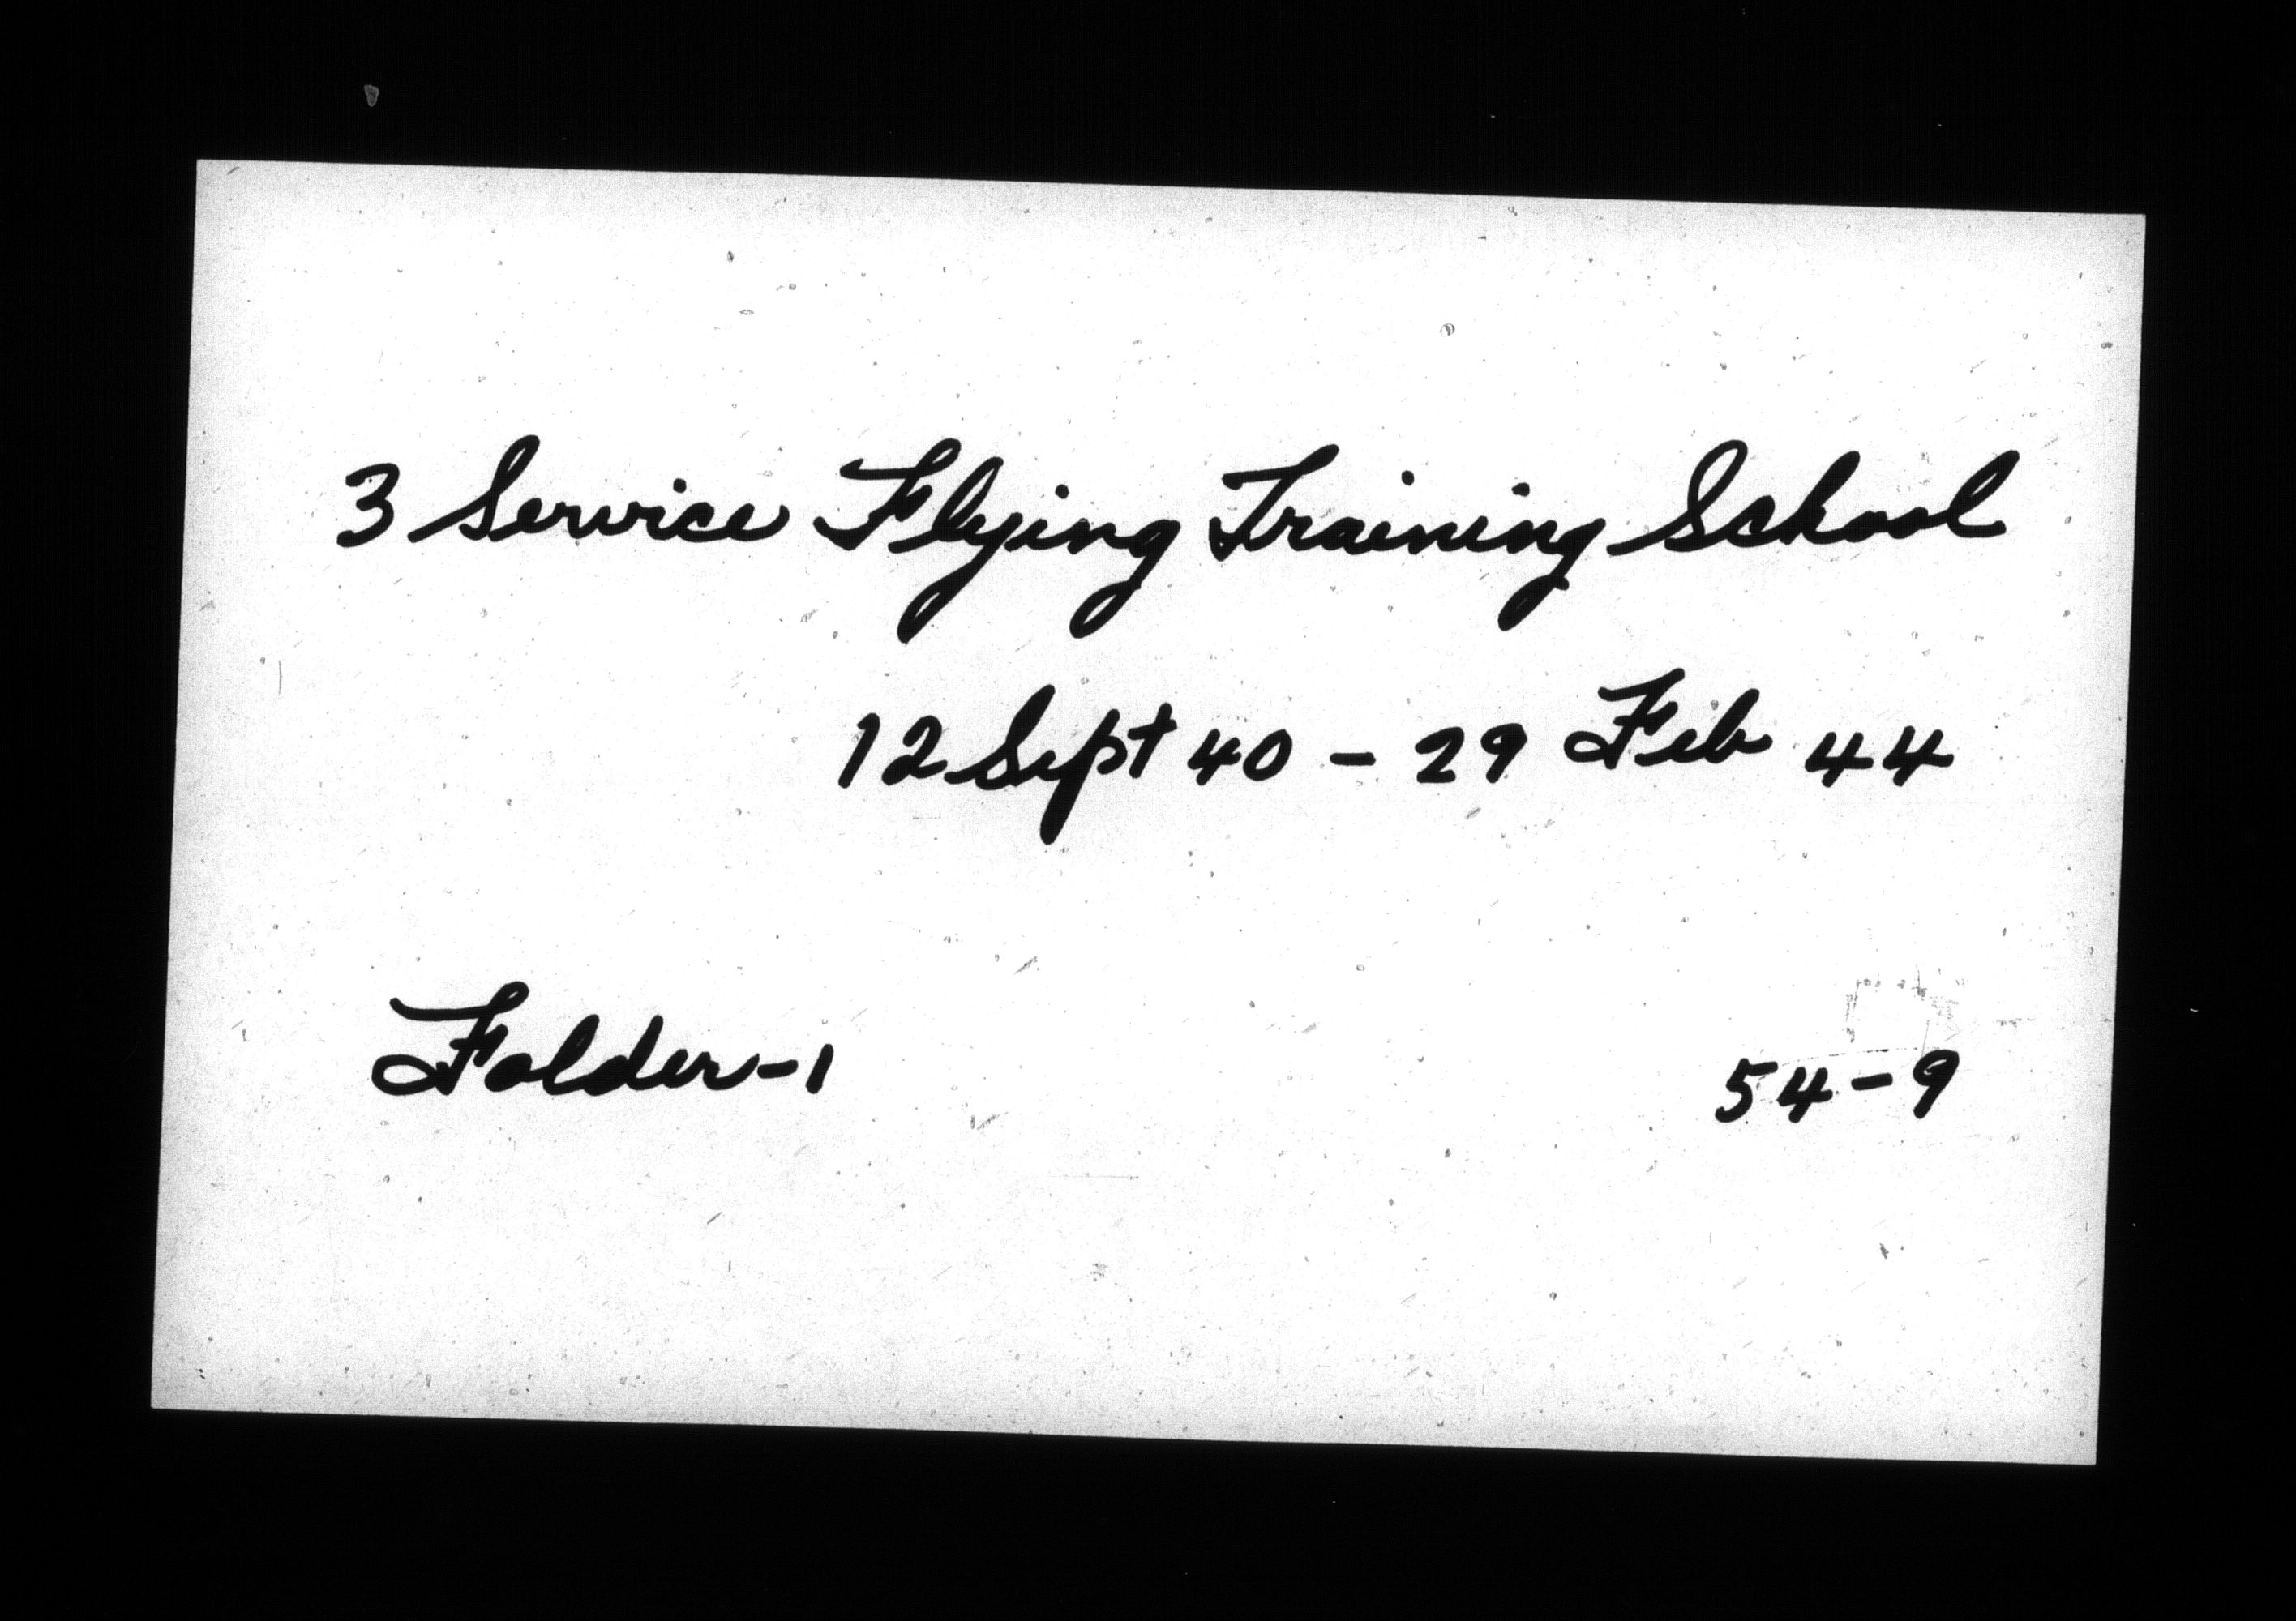 3 Service Flying Training School
12 Sept 40 - 29 Feb 44
Folder-1 54-9